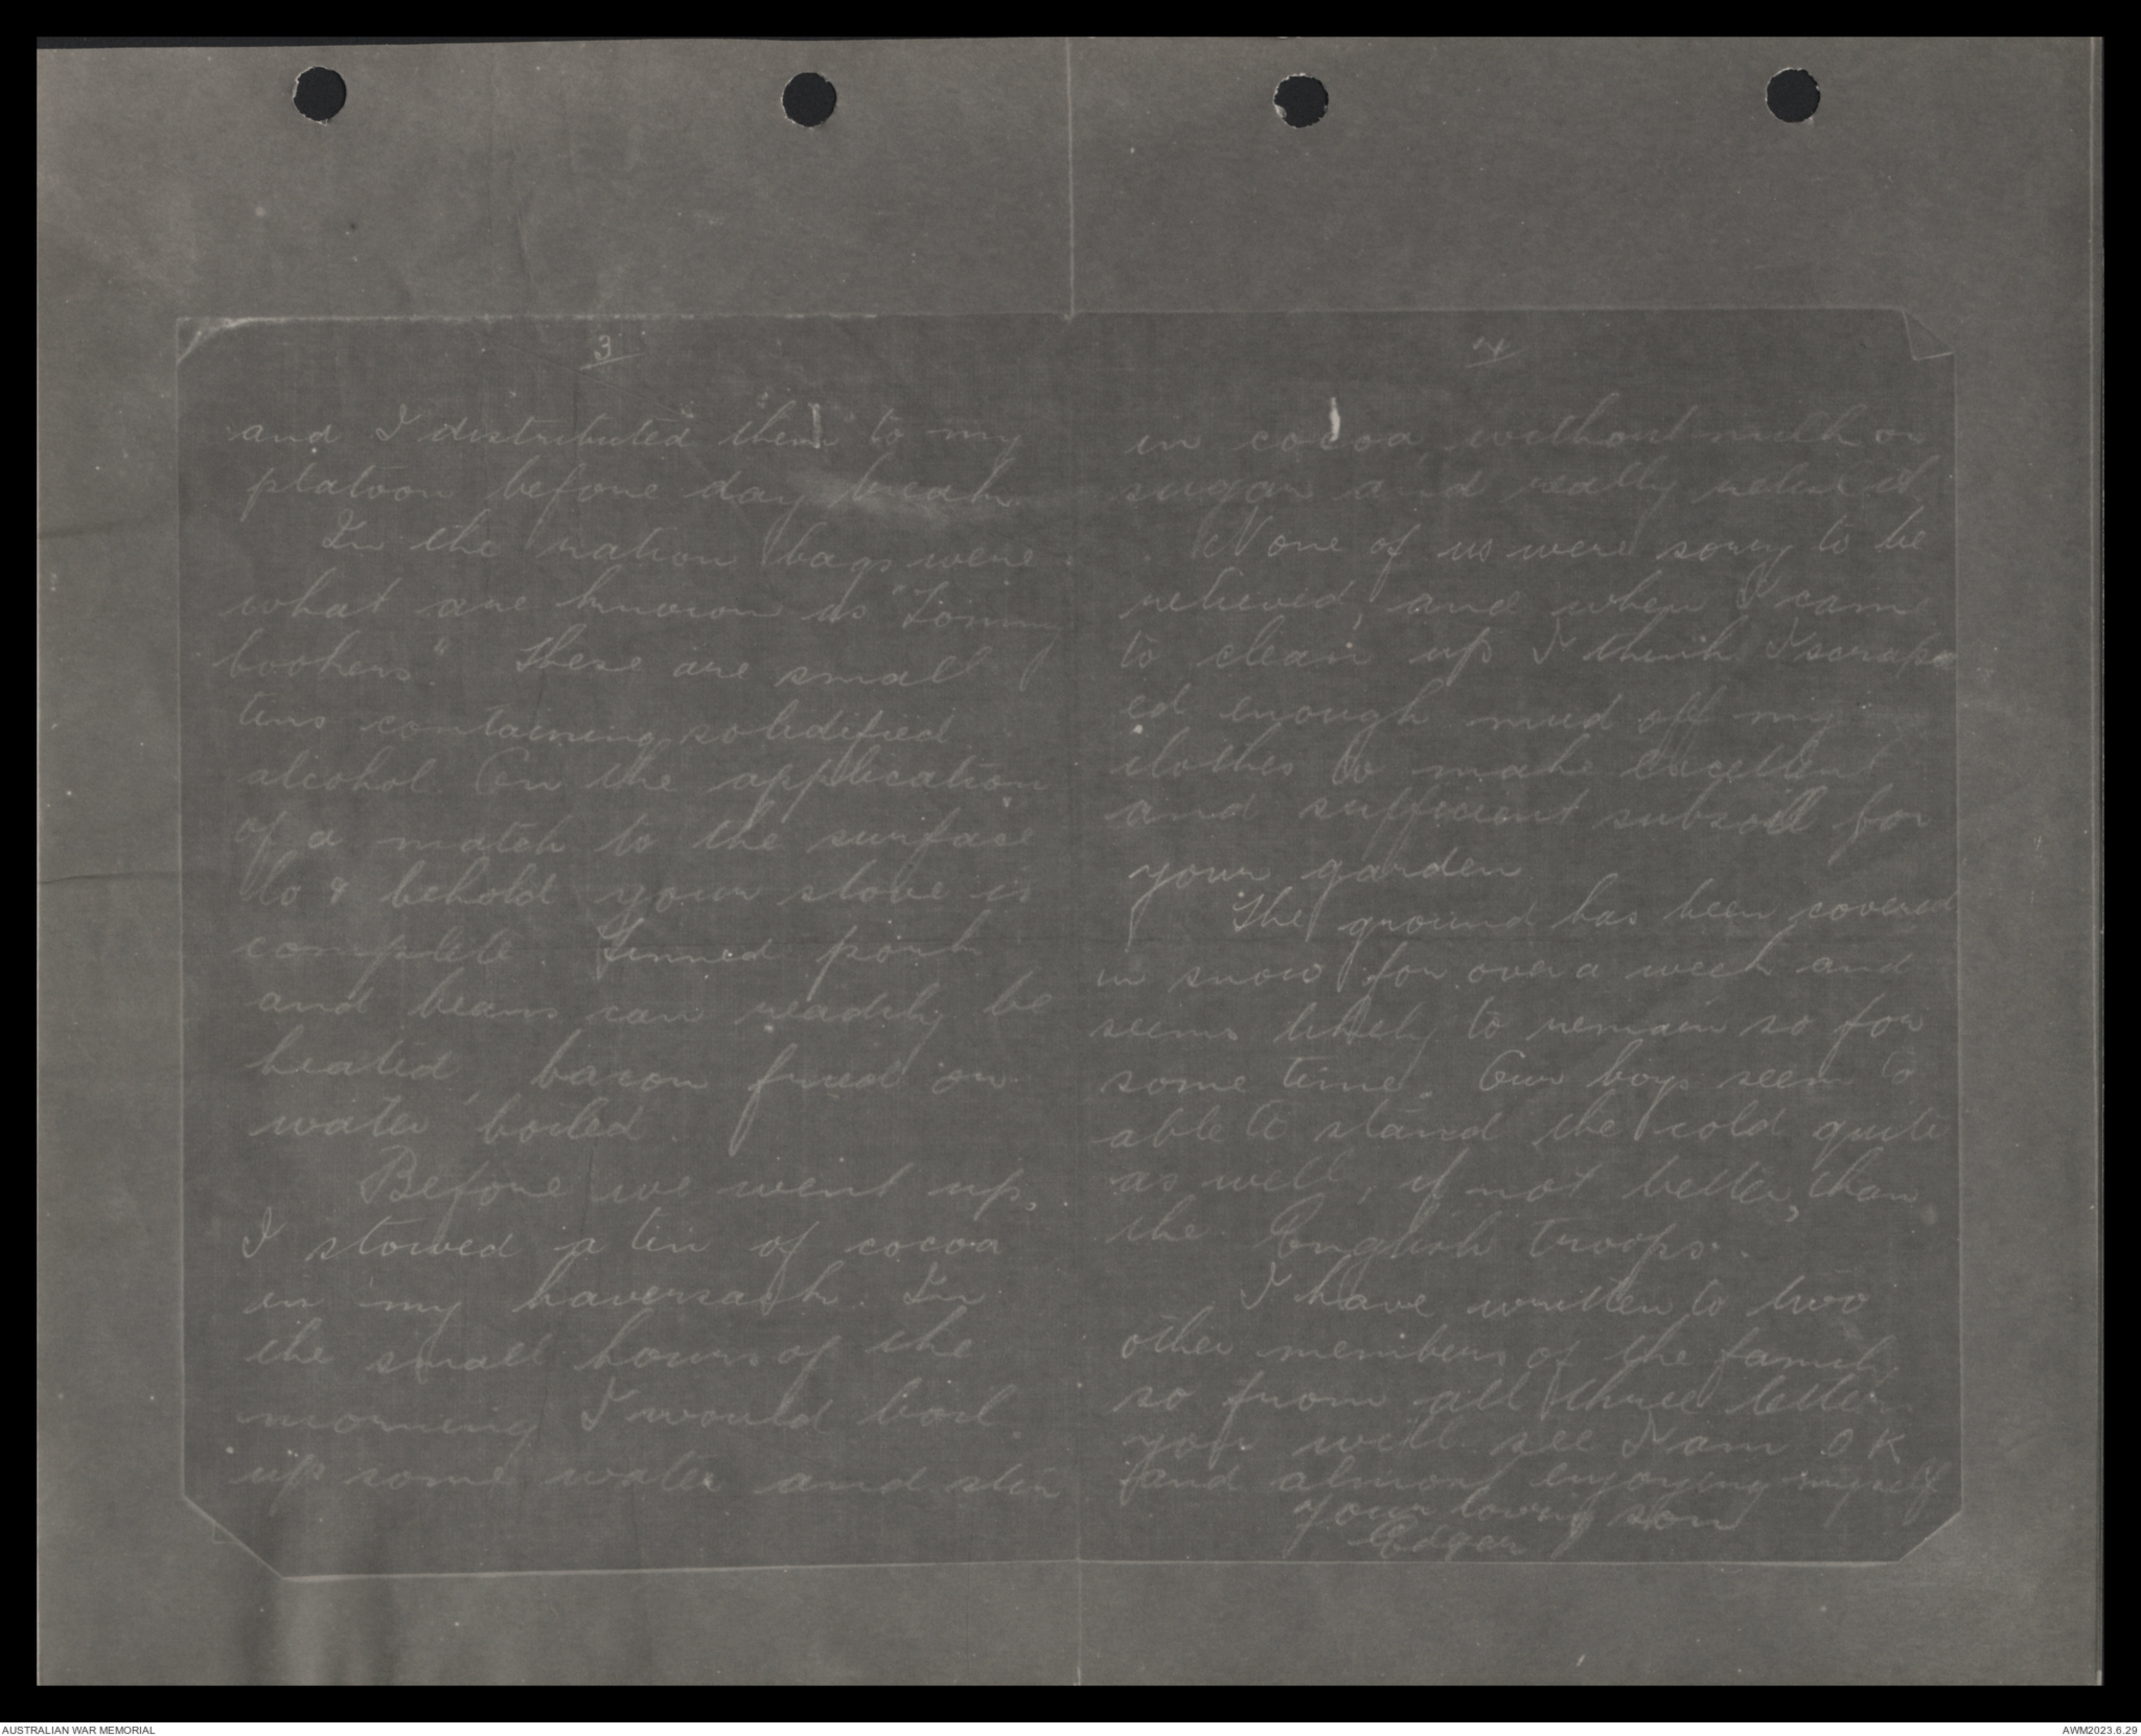 3
and I distributed them to my
platoon before day break.
In the ration bags were
what are known as "Tommy
cookers." These are small
tins containing solidified
alcohol. On the application
of a match to the surface
lo & behold your stove is
complete. Tinned pork
and beans can readily be
heated, bacon fried or
water boiled.
Before we went up,
I stowed a tin of cocoa
in my haversack. In
the small hours of the
morning I would boil
up some water and stir
4
in cocoa, without milk or
sugar and really relish it.
None of us were sorry to be
relieved, and when I came
to clean up I think I scrap
ed enough mud off my
clothes to make excellent
and sufficient subsoil for
your garden
The ground has been covered
in snow for over a week and
seems likely to remain so for
some time. Our boys seem to
able to stand the cold quite
as well, if not better, than
the English troops.
I have written to two
other members of the family
so from all three letters
you will see I am OK
and almost enjoying myself
your loving son
Edgar
AUSTRALIAN WAR MEMORIAL
AWM2023.6.29